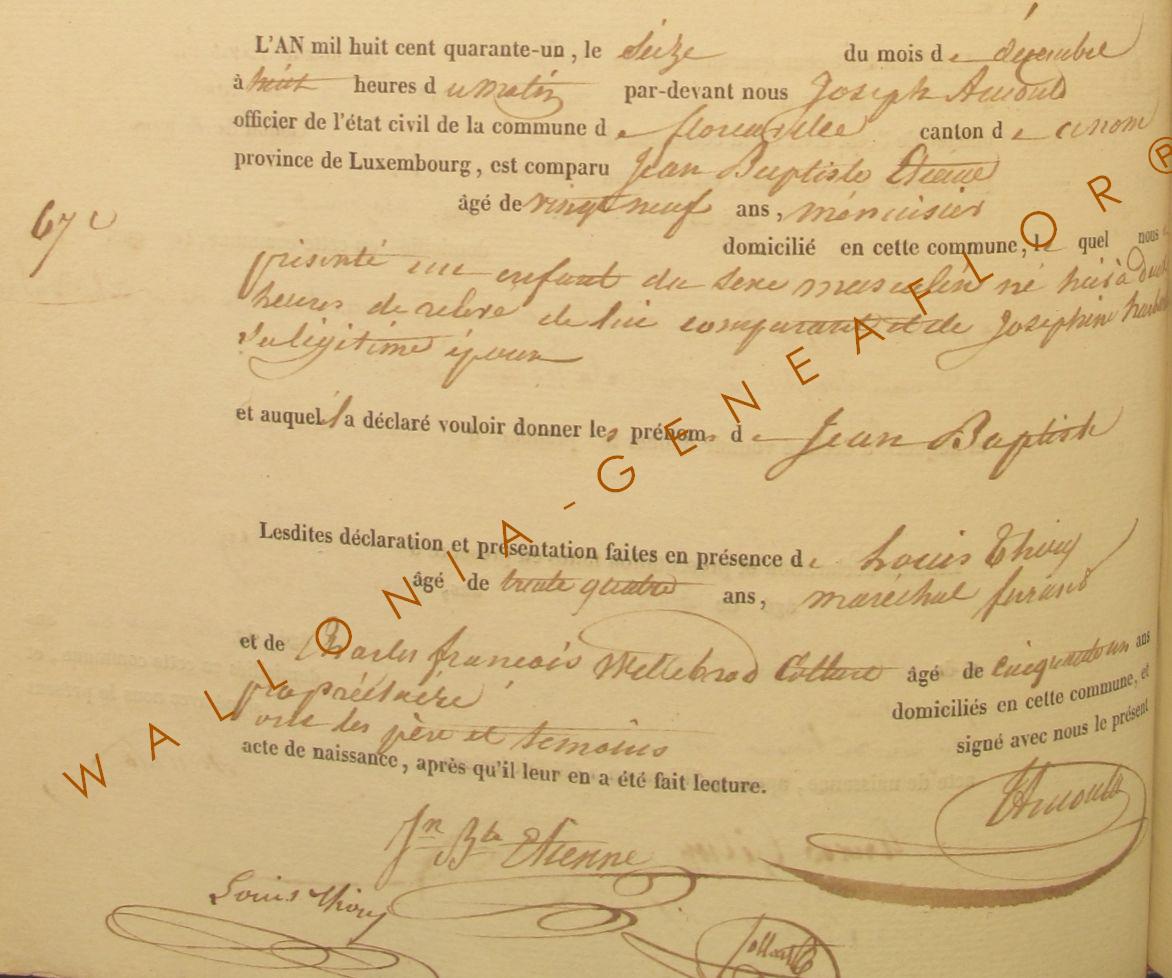 L'AN mil huit cent quarante-un, le seize du mois de décembre
à huit heures du matin par-devant nous Joseph Arnould
officier de l'état civil de la commune de florenville canton d
province de Luxembourg, est comparu Jean Baptiste Etienne
âgé de vingt neuf ans, menuisier
67e
domicilié en cette commune, le quel nous a
présenté un enfant du sexe masculin né hier à deux
heures de relevé de lui comparant et de Josephine
sa légitime épouse
et auquel il a déclaré vouloir donner les prénoms de Jean Baptiste
Lesdites déclaration et présentation faites en présence de Louis Thiry
âgé de trente quatre ans, maréchal ferrand
et de Charles françois Willebrod Collard âgé de cinquante un ans
propriétaire domiciliés en cette commune, et
ont les père et temoins signé avec nous le présent
acte de naissance, après qu'il leur en a été fait lecture.
Arnould
Jn Bte Etienne
Louis Thiry
Collard
WALLONIA-GENEAFLOR®